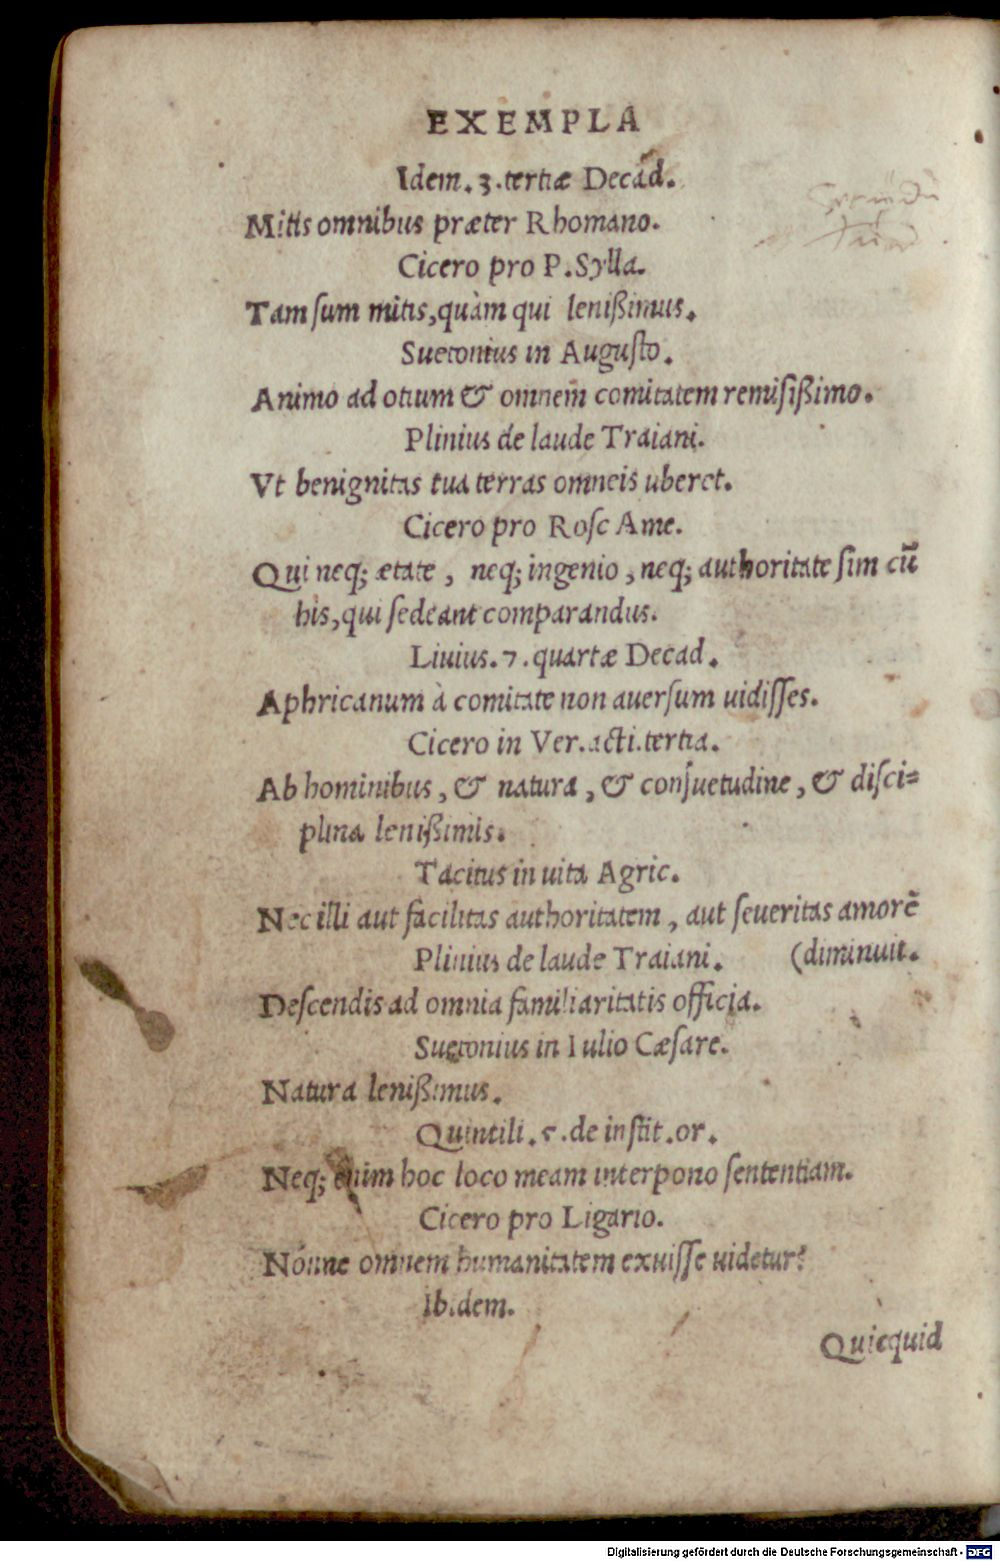 EXEMPLA
Idem.3.tertiæ Decad.
Mitis omnibus præter Rhomano.
Cicero pro P.Sylla.
Tam ſum mitis,quàm qui leniſsimus.
Suetonius in Auguſto.
Animo ad otium & omnem comitatem remiſiſsimo.
Plinius de laude Traiani.
Vt benignitas tua terras omneis uberet.
Cicero pro Roſc Ame.
Qui neq; ætate, neq; ingenio, neq; authoritate ſim cū
his,qui ſedeant comparandus.
Liuius.7.quartæ Decad.
Aphricanum à comitate non auerſum uidiſſes.
Cicero in Ver.acti.tertia.
Ab hominibus, & natura, & conſuetudine, & diſci=
plina leniſsimis.
Tacitus in uita Agric.
Nec illi aut facilitas authoritatem, aut ſeueritas amorē
Plinius de laude Traiani. (diminuit.
Deſcendis ad omnia familiaritatis officia.
Suetonius in Iulio Cæſare.
Natura leniſsimus.
Quintili.5.de inſtit.or.
Neq; enim hoc loco meam interpono ſententiam.
Cicero pro Ligario.
Nónne omnem humanitatem exuiſſe uidetur?
Ibidem.
Quicquid
Digitalisierung gefördert durch die Deutsche Forschungsgemeinschaft - DFG